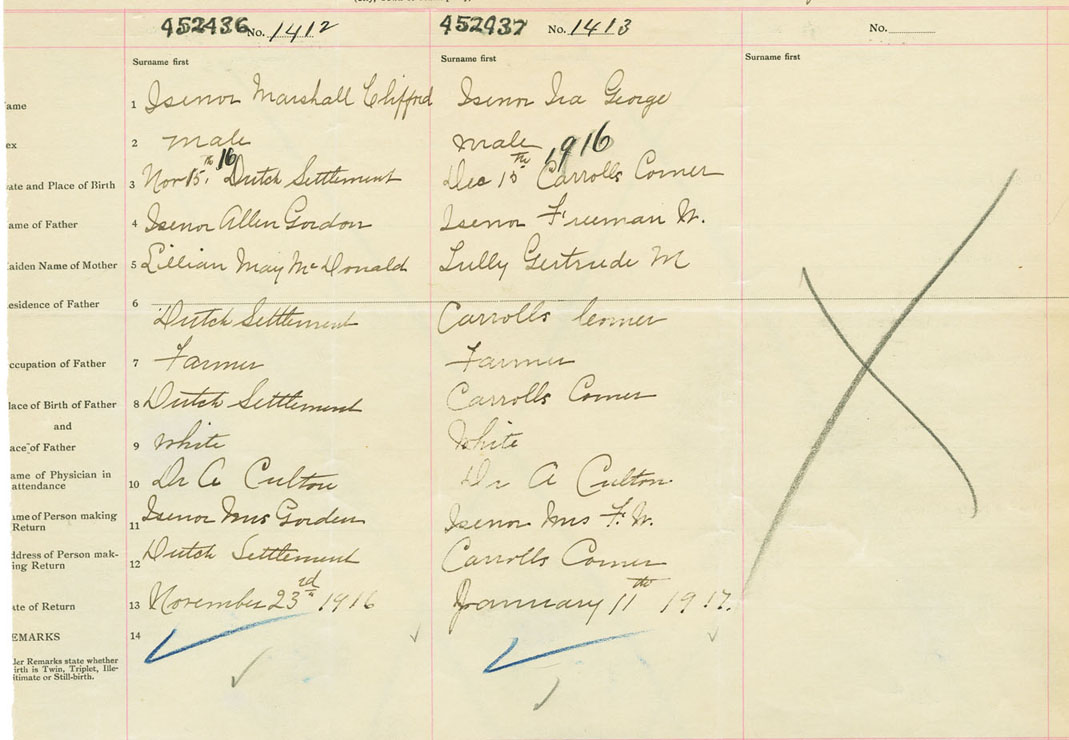 452436 No. 1412
452437 No. 1413
No.
Surname first
Surname first
Surname first
ame 1 Isenor Marshall Clifford Isenor Ira George
ex 2 male male
ate and Place of Birth 3 Nov 15th 16 Dutch Settlement Dec 15th 1916 Carrolls Corner
ame of Father 4 Isenor Allen Gordon Isenor Freeman W.
aiden Name of Mother 5 Lillian May McDonald Lully Gertrude M
esidence of Father 6 Dutch Settlement Carrolls Corner
ccupation of Father 7 Farmer Farmer
lace of Birth of Father 8 Dutch Settlement Carrolls Corner
and
ace of Father 9 White White
ame of Physician in
attendance 10 Dr A Culton Dr A Culton
ame of Person making
Return 11 Isenor Mrs Gorden Isenor Mrs F. W.
ddress of Person mak-
ing Return 12 Dutch Settlement Carrolls Corner
ate of Return 13 November 23rd 1916 January 11th 1917.
EMARKS 14
der Remarks state whether
irth is Twin, Triplet, Ille-
itimate or Still-birth.